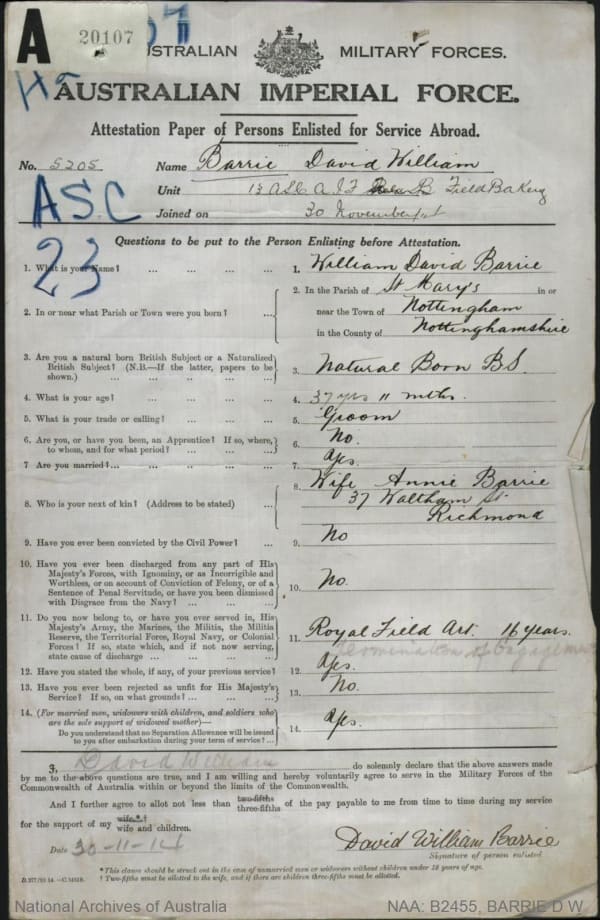 A 20107
AUSTRALIAN MILITARY FORCES.
AUSTRALIAN IMPERIAL FORCE.
Attestation Paper of Persons Enlisted for Service Abroad.
No. 5205 Name Barrie David William
Unit 13 ASC A.I.F. Field Bakery
Joined on 30 November
ASC
23
Questions to be put to the Person Enlisting before Attestation.
1. What is your Name? ... ... ... ... 1. William David Barrie
2. In or near what Parish or Town were you born? ... 2. In the Parish of St Mary's in or
near the Town of Nottingham
in the County of Nottinghamshire
3. Are you a natural born British Subject or a Naturalized
British Subject? (N.B.—If the latter, papers to be
shown.) ... ... ... ... ... 3. Natural Born B.S.
4. What is your age? ... ... ... ... 4. 37 yrs 11 mths.
5. What is your trade or calling? ... ... ... 5. Groom
6. Are you, or have you been, an Apprentice? If so, where,
to whom, and for what period? ... ... ... 6. No.
7 Are you married? ... ... ... ... ... 7. Yes.
8. Who is your next of kin? (Address to be stated) ... 8. Wife Annie Barrie
37 Waltham St
Richmond
9. Have you ever been convicted by the Civil Power? ... 9. No
10. Have you ever been discharged from any part of His
Majesty's Forces, with Ignominy, or as Incorrigible and
Worthless, or on account of Conviction of Felony, or of a
Sentence of Penal Servitude, or have you been dismissed
with Disgrace from the Navy? ... ... ... 10. No.
11. Do you now belong to, or have you ever served in, His
Majesty's Army, the Marines, the Militia, the Militia
Reserve, the Territorial Force, Royal Navy, or Colonial
Forces? If so, state which, and if not now serving,
state cause of discharge ... ... ... ... 11. Royal Field Art. 16 years.
Termination of Engagement
12. Have you stated the whole, if any, of your previous service? 12. Yes.
13. Have you ever been rejected as unfit for His Majesty's
Service? If so, on what grounds? ... ... ... 13. No.
14. (For married men, widowers with children, and soldiers who
are the sole support of widowed mother)—
Do you understand that no Separation Allowance will be issued
to you after embarkation during your term of service? ... 14. Yes.
I, David William do solemnly declare that the above answers made
by me to the above questions are true, and I am willing and hereby voluntarily agree to serve in the Military Forces of the
Commonwealth of Australia within or beyond the limits of the Commonwealth.
And I further agree to allot not less than two-fifths three-fifths of the pay payable to me from time to time during my service
for the support of my wife.*† wife and children.
Date 30-11-14 David William Barrie
Signature of person enlisted.
* This clause should be struck out in the case of unmarried men or widowers without children under 18 years of age.
† Two-fifths must be allotted to the wife, and if there are children three-fifths must be allotted.
National Archives of Australia NAA: B2455, BARRIE D W